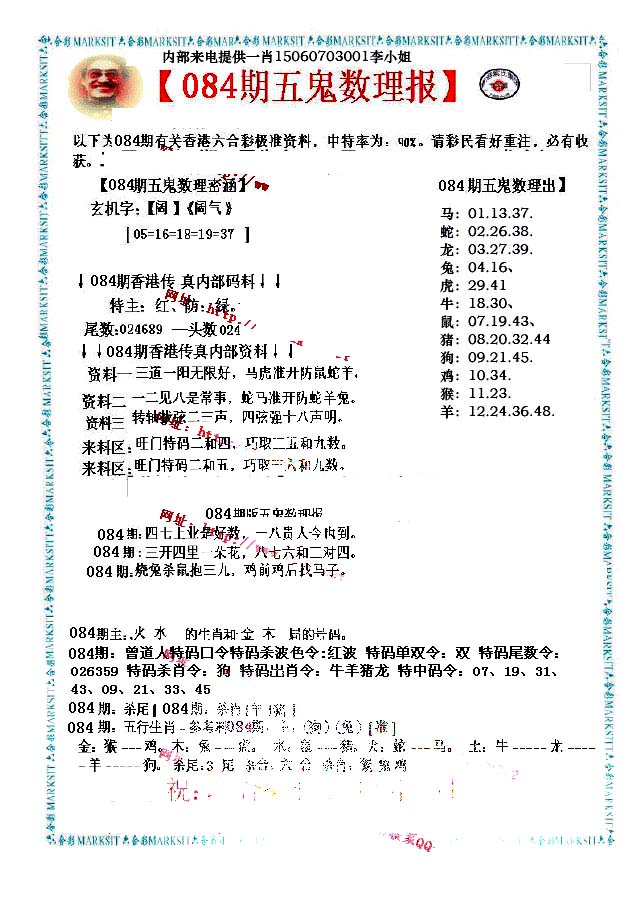 内部来电提供一肖15060703001李小姐
【084期五鬼数理报】
以下为084期有关香港六合彩极准资料，中特率为：90%。请彩民看好重注，必有收
获。
【084期五鬼数理密涵】
玄机字：【阁】《阁气》
[05=16=18=19=37 ]
↓084期香港传 真内部码料↓ ↓
特主：红、防：绿。
尾数：024689 一头数024
↓↓084期香港传真内部资料↓ ↓
资料一 三道一阳无限好，马虎准开防鼠蛇羊。
资料二 一二见八是常事，蛇马准开防蛇羊兔。
资料三 转轴拨弦二三声，四弦强十八声明。
来料区：旺门特码二和四、巧取二五和九数。
来料区：旺门特码二和五，巧取三六和九数。
084期五鬼数理出】
马：01.13.37.
蛇：02.26.38.
龙：03.27.39.
兔：04.16、
虎：29.41
牛：18.30、
鼠：07.19.43、
猪：08.20.32.44
狗：09.21.45.
鸡：10.34.
猴：11.23.
羊：12.24.36.48.
084期版五鬼数理报
084期：四七上业是好数，一八贵人今肉到。
084期：三开四里一朵花，八七六和二对四。
084期：烧兔杀鼠抱三九，鸡前鸡后找马子。
084期主：火 水 的生肖和 金 木 局的号码。
084期：曾道人特码口令特码杀波色令：红波 特码单双令：双 特码尾数令：
026359 特码杀肖令：狗 特码出肖令：牛羊猪龙 特中码令：07、19、31、
43、09、21、33、45
084期：杀尾[ 084期：杀肖
084期：五行生肖 - 参考料084期 (狗) (兔)
金：猴 --- 鸡 木： 水： --- 猪。火：蛇 --- 马。 土：牛 ----- 龙 ----
- 羊 ----- 狗。 杀尾：3 尾
祝：
网址：http://
QQ
MARKSIT六合彩